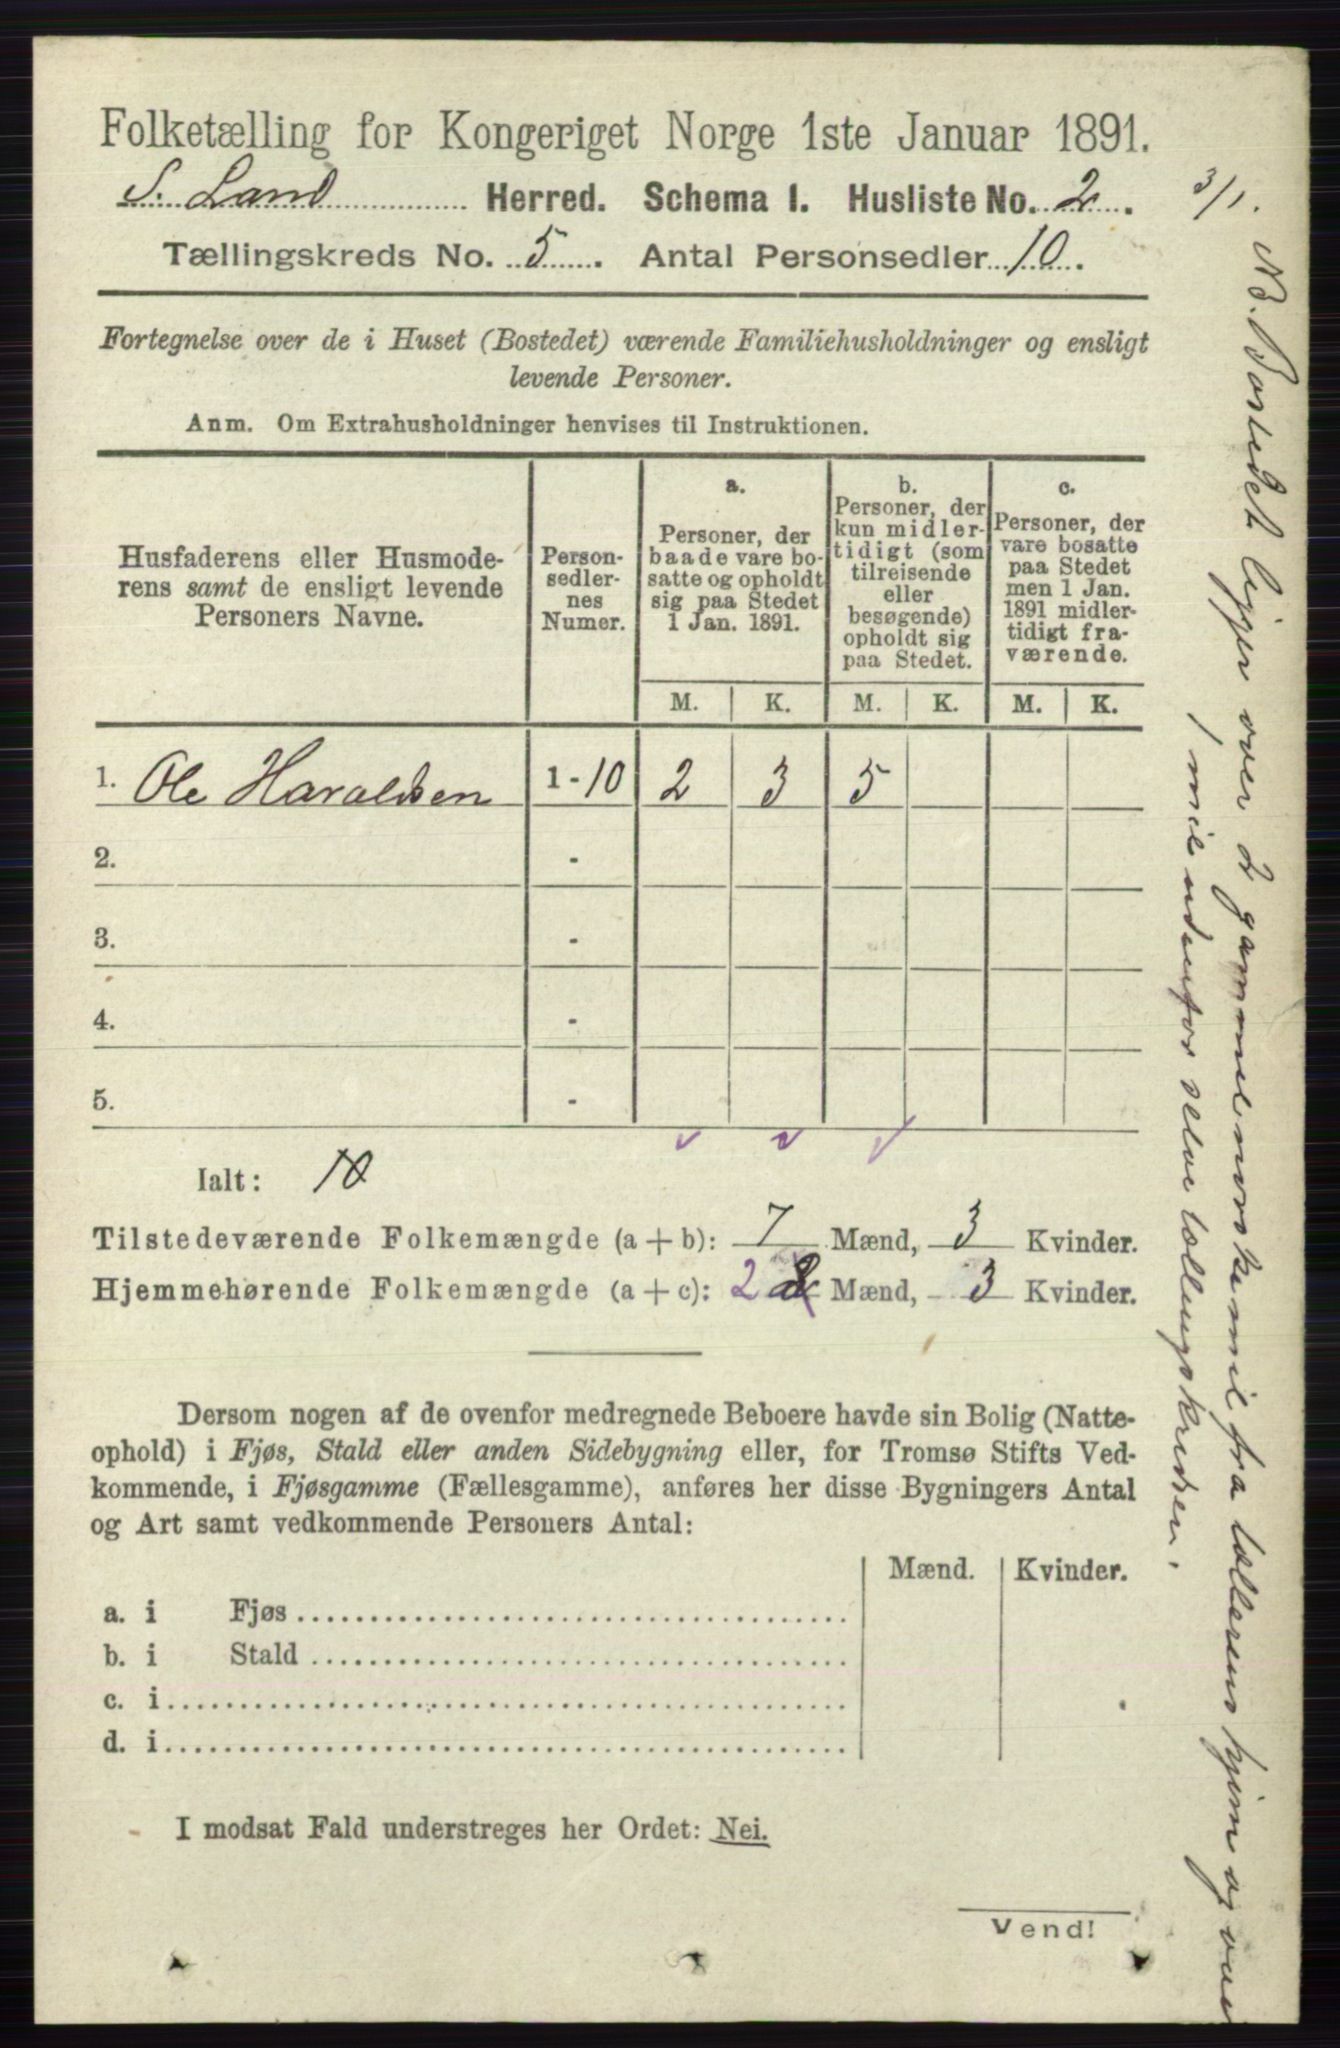 Folketælling for Kongeriget Norge 1ste Januar 1891.
S. Land Herred. Schema 1. Husliste No. 2.
Tællingskreds No. 5. Antal Personsedler 10.
Fortegnelse over de i Huset (Bostedet) værende Familiehusholdninger og ensligt
levende Personer.
Anm. Om Extrahusholdninger henvises til Instruktionen.
Husfaderens eller Husmode-
rens samt de ensligt levende
Personers Navne.
Person-
sedler-
nes
Numer.
a.
Personer, der
baade vare bo-
satte og opholdt
sig paa Stedet
1 Jan. 1891.
b.
Personer, der
kun midler-
tidigt (som
tilreisende
eller
besøgende)
opholdt sig
paa Stedet.
c.
Personer, der
vare bosatte
paa Stedet
men 1 Jan.
1891 midler-
tidigt fra-
værende.
M. K. M. K. M. K.
1. Ole Haraldsen 1-10 2 3 5
2. -
3. -
4. -
5. -
Ialt: 10
Tilstedeværende Folkemængde (a + b): 7 Mænd, 3 Kvinder.
Hjemmehørende Folkemængde (a + c): 2 Mænd, 3 Kvinder.
Dersom nogen af de ovenfor medregnede Beboere havde sin Bolig (Natte-
ophold) i Fjøs, Stald eller anden Sidebygning eller, for Tromsø Stifts Ved-
kommende, i Fjøsgamme (Fællesgamme), anføres her disse Bygningers Antal
og Art samt vedkommende Personers Antal:
Mænd. Kvinder.
a. i Fjøs
b. i Stald
c. i
d. i
I modsat Fald understreges her Ordet: Nei.
Vend!
3/1.
NB. Bostedet ligger over 2 gammelnorske mil fra tællerens hjem og over
1 mil udenfor selve tællingskredsen.